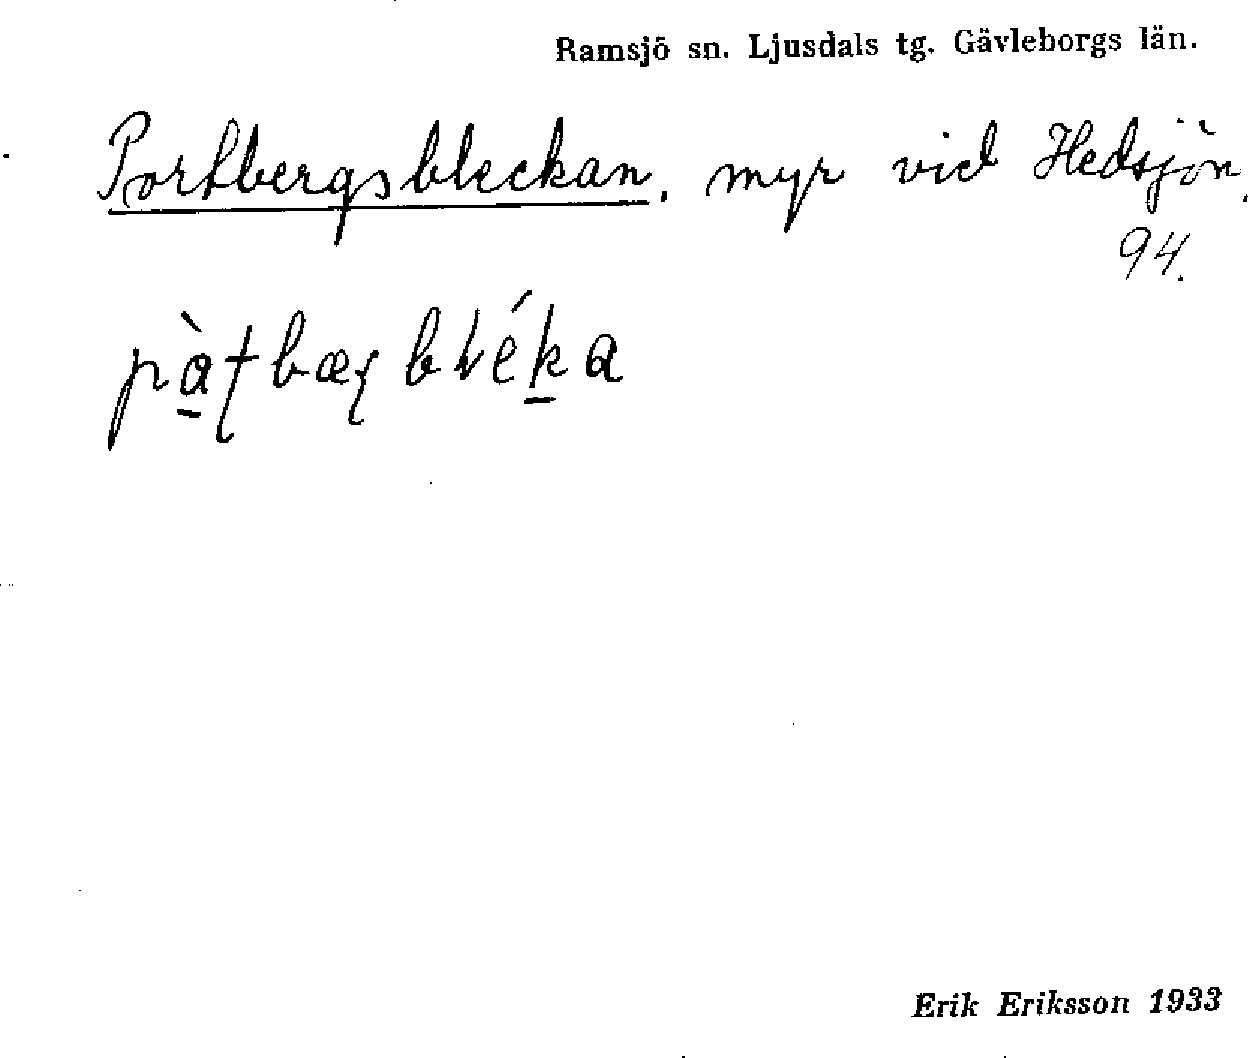 Ramsjö sn. Ljusdals tg. Gävleborgs län.
Portbergsbleckan, myr vid Hedsjön.
94.
Erik Eriksson 1933